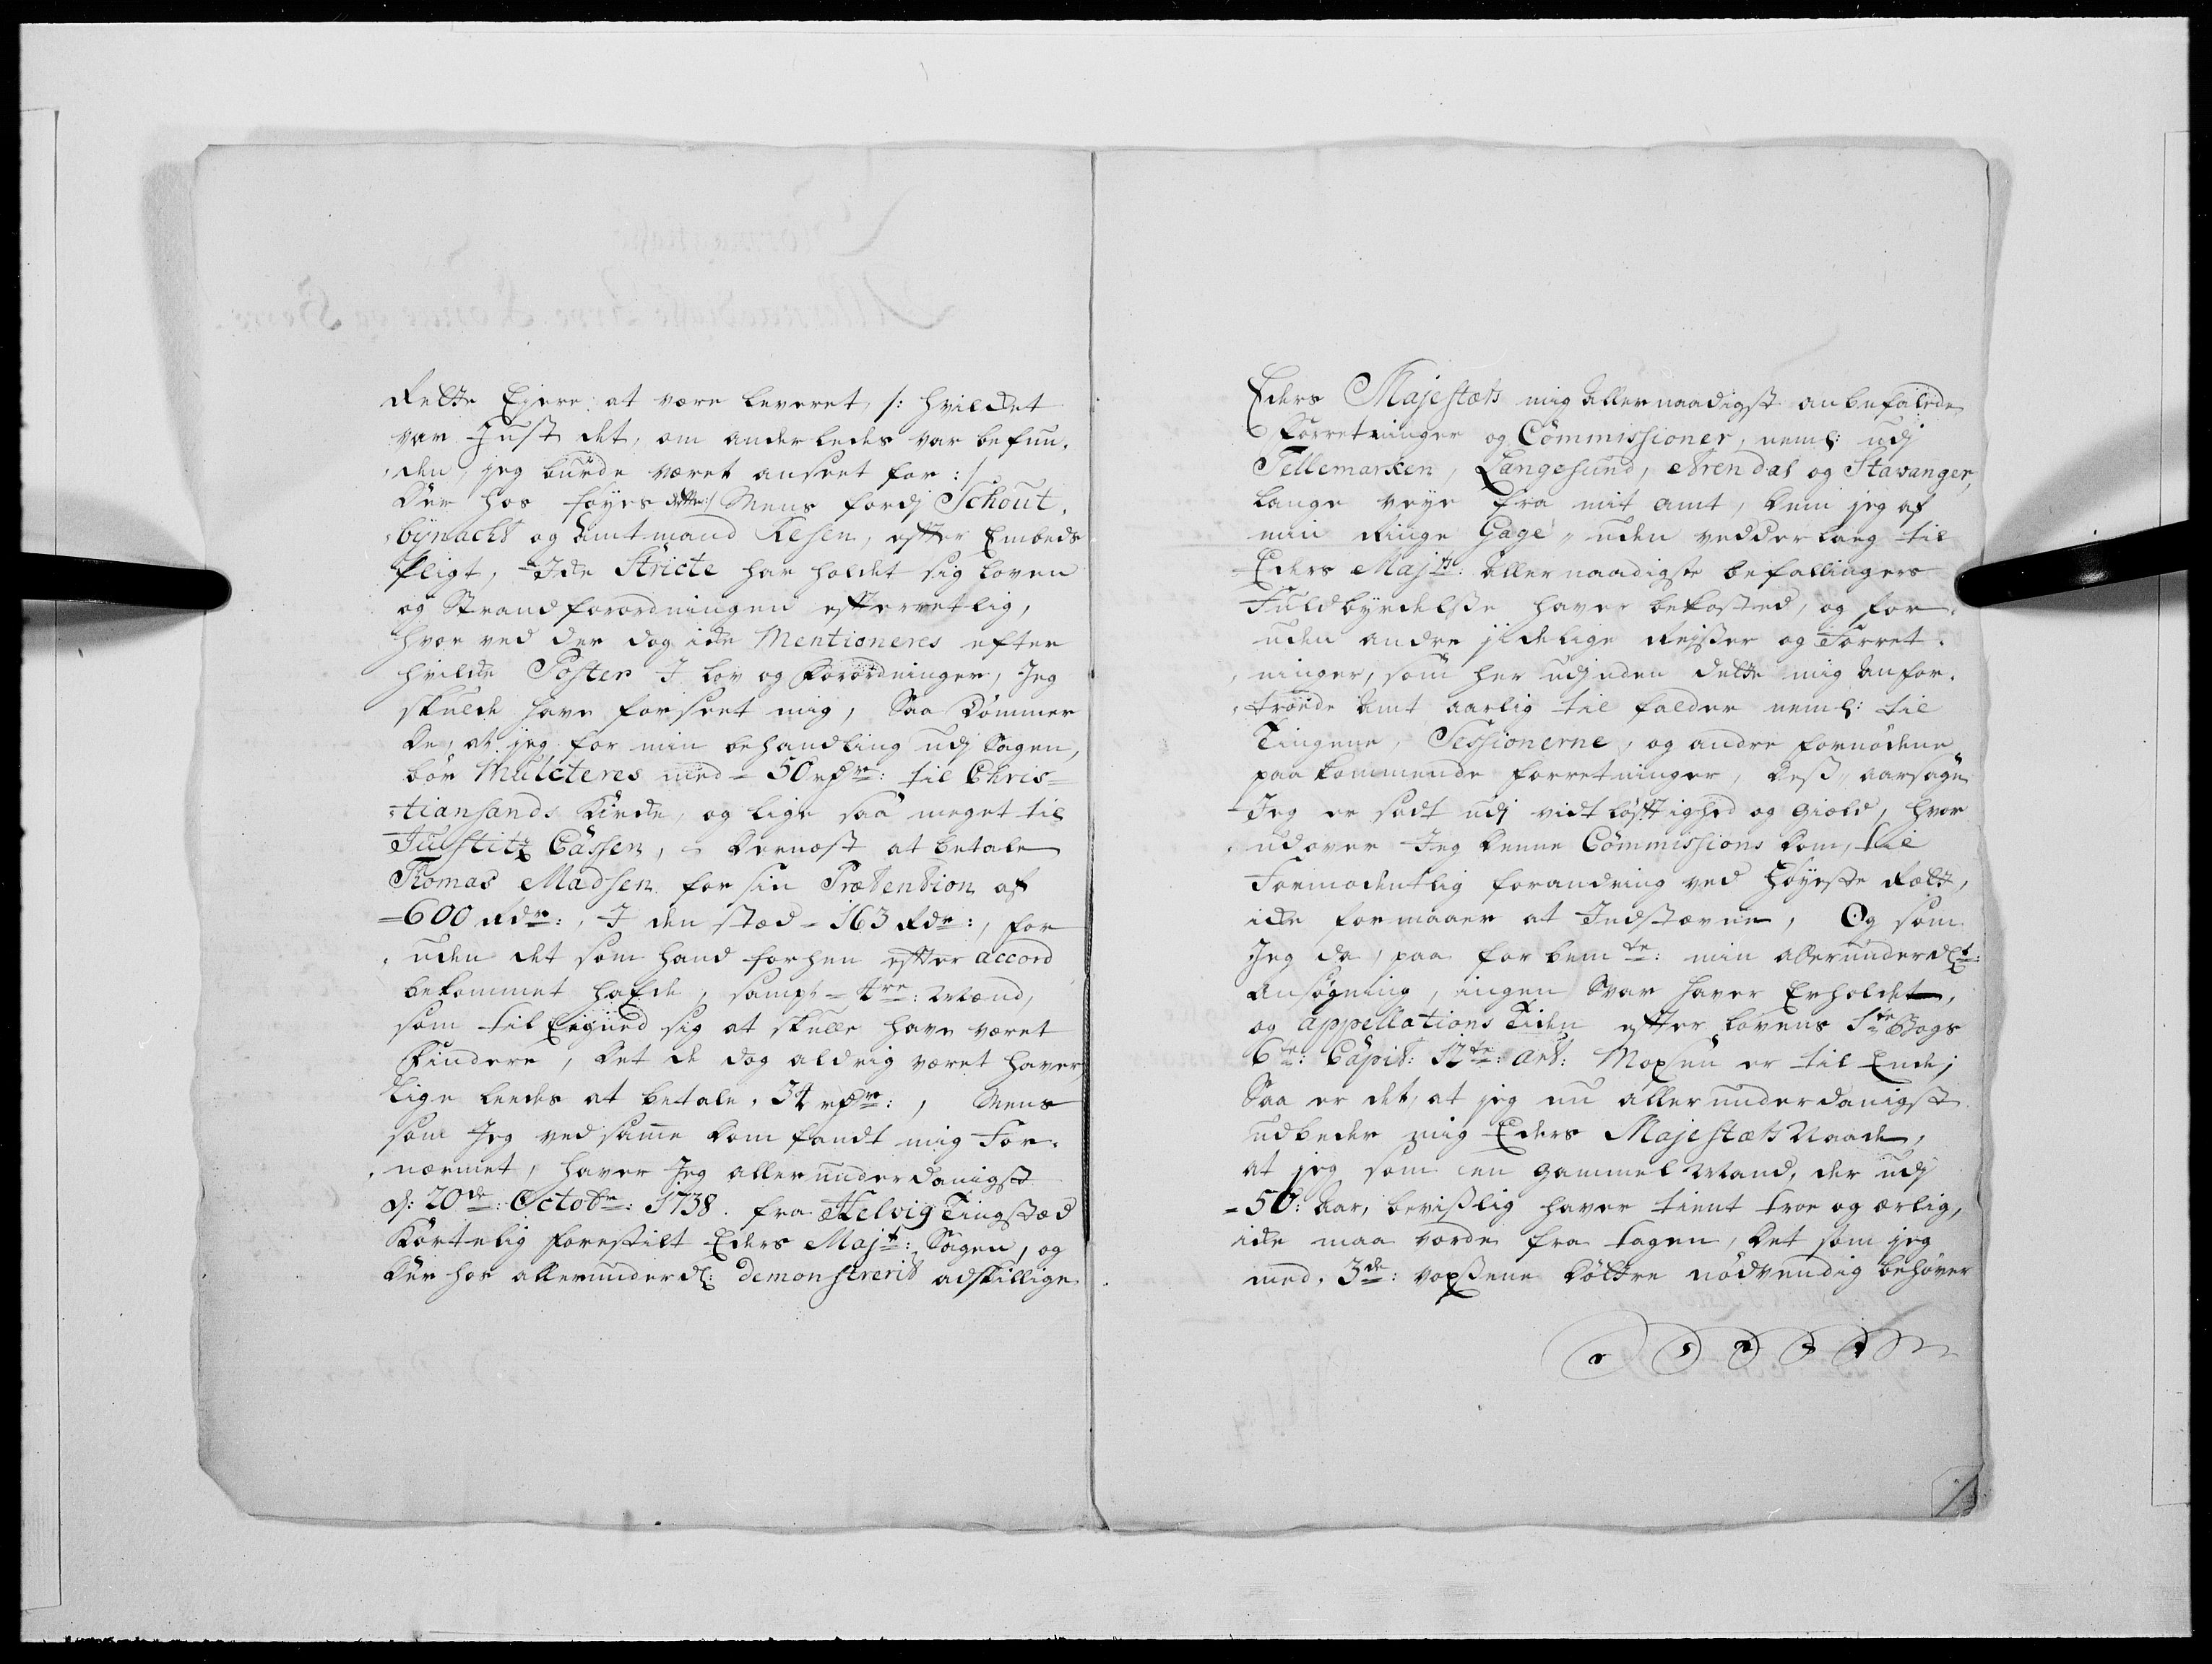 Rette Ejere at være leveret, /: hvilcket
var Just det, om anderledes var befun-
den, jeg burde været anseet for :/
Der hos føyes dette:/ Mens fordj Schout-
bynacht og Amtmand Resen, efter Embeds
Pligt, Icke Stricte har holdet sig Loven
og Strandforordningen efterretlig,
hvor ved der dog icke Mentioneres efter
hvilcke Poster I Lov og Forordninger, Jeg
skulde have forseet mig, Saa Dømmer
De, at jeg for min behandling udj Sagen,
bør Mulcteres med - 50 rdr: til Chris-
tiansands Kircke, og lige saa meget til
Justitz Cassen, Dernæst at betale
Thomas Madsen for sin Prætention af
600 Rdr:, I den stæd - 163 Rdr:, for
uden det som hand forhen efter accord
bekommet hafde, sampt - 4re: Mænd,
som til Eigned sig at skulle have været
Findere, Det de dog aldrig været haver,
Lige leedes at betale, 34 rdr:, Mens
som Jeg ved samme Dom fandt mig For-
nærmet, haver Jeg allerunderdanigst
d: 20de: Octobr: 1738. fra Helvig Tingstæd
Kortelig forestilt Eders Majt: Sagen, og
Der hos allerunderd: demonstrerit adskillige
Eders Majestæts mig Allernaadigst anbefalede
Forretninger og Commissioner, neml: udj
Tellemarken, Langesund, Arendal og Stavanger,
lange veye fra mit amt, Dem jeg af
min Ringe Gage, uden vedderlaeg til
Eders Majts: Allernaadigste befallingers
Fuldbyrdelsse haver bekosted, og for-
uden andre jidelige Rejsser og Forret-
ninger, som her udj uden dette mig Anfor-
troede Amt aarlig til falder neml: til
Tingene, Sessionerne, og andre fornødene
paakommende forretninger, Dess aarsage
Jeg er sadt udj vidtløfftighed og Giæld, hvor
udover Jeg Denne Commissions Dom, til
Formodentlig forandring ved Høyeste Rætt,
icke formaaer at Indstævne, Og som
Jeg da, paa forbemte: min allerunderdt:
Ansøgning, ingen Svar haver Erholdet,
og appellations Tiden efter Lovens 1te Bogs
6te: Capit: 12te: art: er til Ende;
Saa er det, at jeg nu allerunderdanigst
udbeder mig Eders Majestæts Naade,
at jeg som een Gammel Mand, der udj
50: Aar, bevisslig haver tient troe og ærlig,
icke maa vorde fra tagen, Det som jeg
med, 3de: voxsene Døttre nødvendig behøver